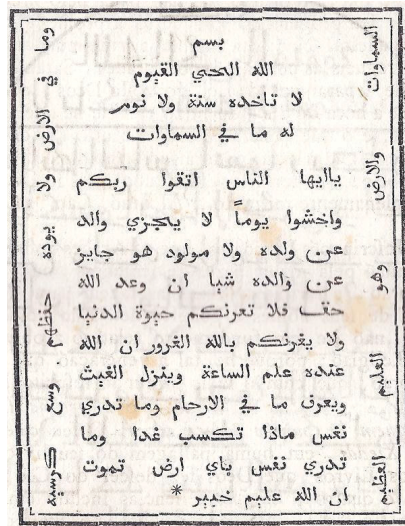 بسم
الله الحي القيوم
لا تاخده سنة ولا نوم
له ما في السماوات
ياايها الناس اتقوا ربكم
واخشوا يوماً لا يجزي والد
عن ولده ولا مولود هو جايز
عن والده شيا ان وعد الله
حق فلا تغرنكم حيوة الدنيا
ولا يغرنكم بالله الغرور ان الله
عنده علم الساعة وينزل الغيث
ويعرف ما في الارحام وما تدري
نفس ماذا تكسب غدا وما
تدري نفس باي ارض تموت
ان الله عليم خبير *
وما في الارض ولا يوده حفظهم وسع كرسيه
السماوات والارض وهو العليم العظيم